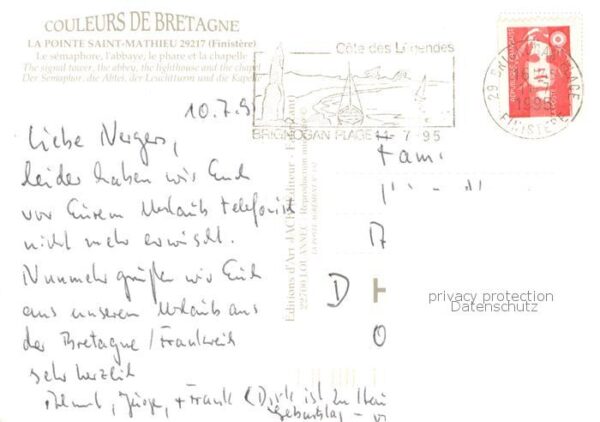 COULEURS DE BRETAGNE
LA POINTE SAINT-MATHIEU 29217 (Finistère)
Le sémaphore, l'abbaye, le phare et la chapelle
The signal tower, the abbey, the lighthouse and the chapel
Der Semaphor, die Abtei, der Leuchtturm und die Kapelle
Côte des Légendes
BRIGNOGAN PLAGE 11-7-95
REPUBLIQUE FRANÇAISE
29 BRIGNOGAN PLAGE
1995
FINISTERE
10.7.95
Liebe Nergers,
leider haben wir Euch
vor Eurem Urlaub telefonisch
nicht mehr erwischt.
Nunmehr grüßen wir Euch
aus unserem Urlaub aus
der Bretagne / Frankreich
sehr herzlich
Jürgen, + Frank (Dirk ist zu Hau
Geburtstag -
Editions d'Art JACK Editeur
22700 LOUANNEC - Reproduction
Fam
D
privacy protection
Datenschutz